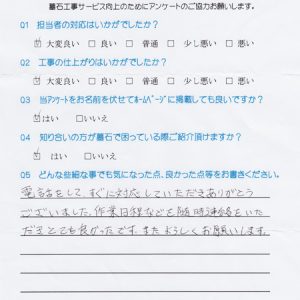 墓石工事サービス向上のためにアンケートのご協力お願いします。
01 担当者の対応はいかがでしたか?
☑ 大変良い □ 良い □ 普通 □ 少し悪い □ 悪い
02 工事の仕上がりはいかがでしたか?
☑ 大変良い □ 良い □ 普通 □ 少し悪い □ 悪い
03 当アンケートをお名前を伏せてホームページに掲載しても良いですか?
☑ はい □ いいえ
04 知り合いの方が墓石で困っている際ご紹介頂けますか?
☑ はい □ いいえ
05 どんな些細な事でも気になった点、良かった点等をお書きください。
電話をして、すぐに対応していただきありがとう
ございました。作業日程などを随時連絡をいた
だきとても良かったです。またよろしくお願いします。